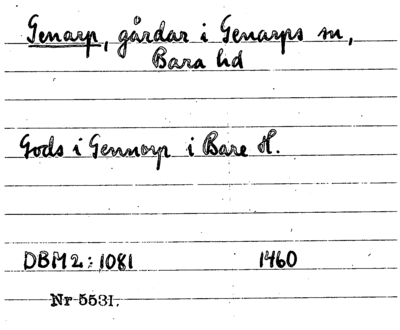 Genarp, gårdar i Genarps sn,
Bara hd
Gods i Gennorp i Bare H.
DBM 2: 1081 1460
Nr 5531.